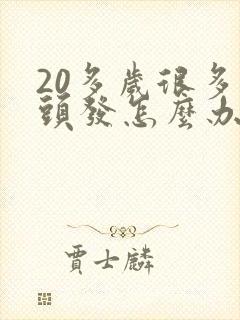 20多歲很多
頭發怎麼办
賈士麟